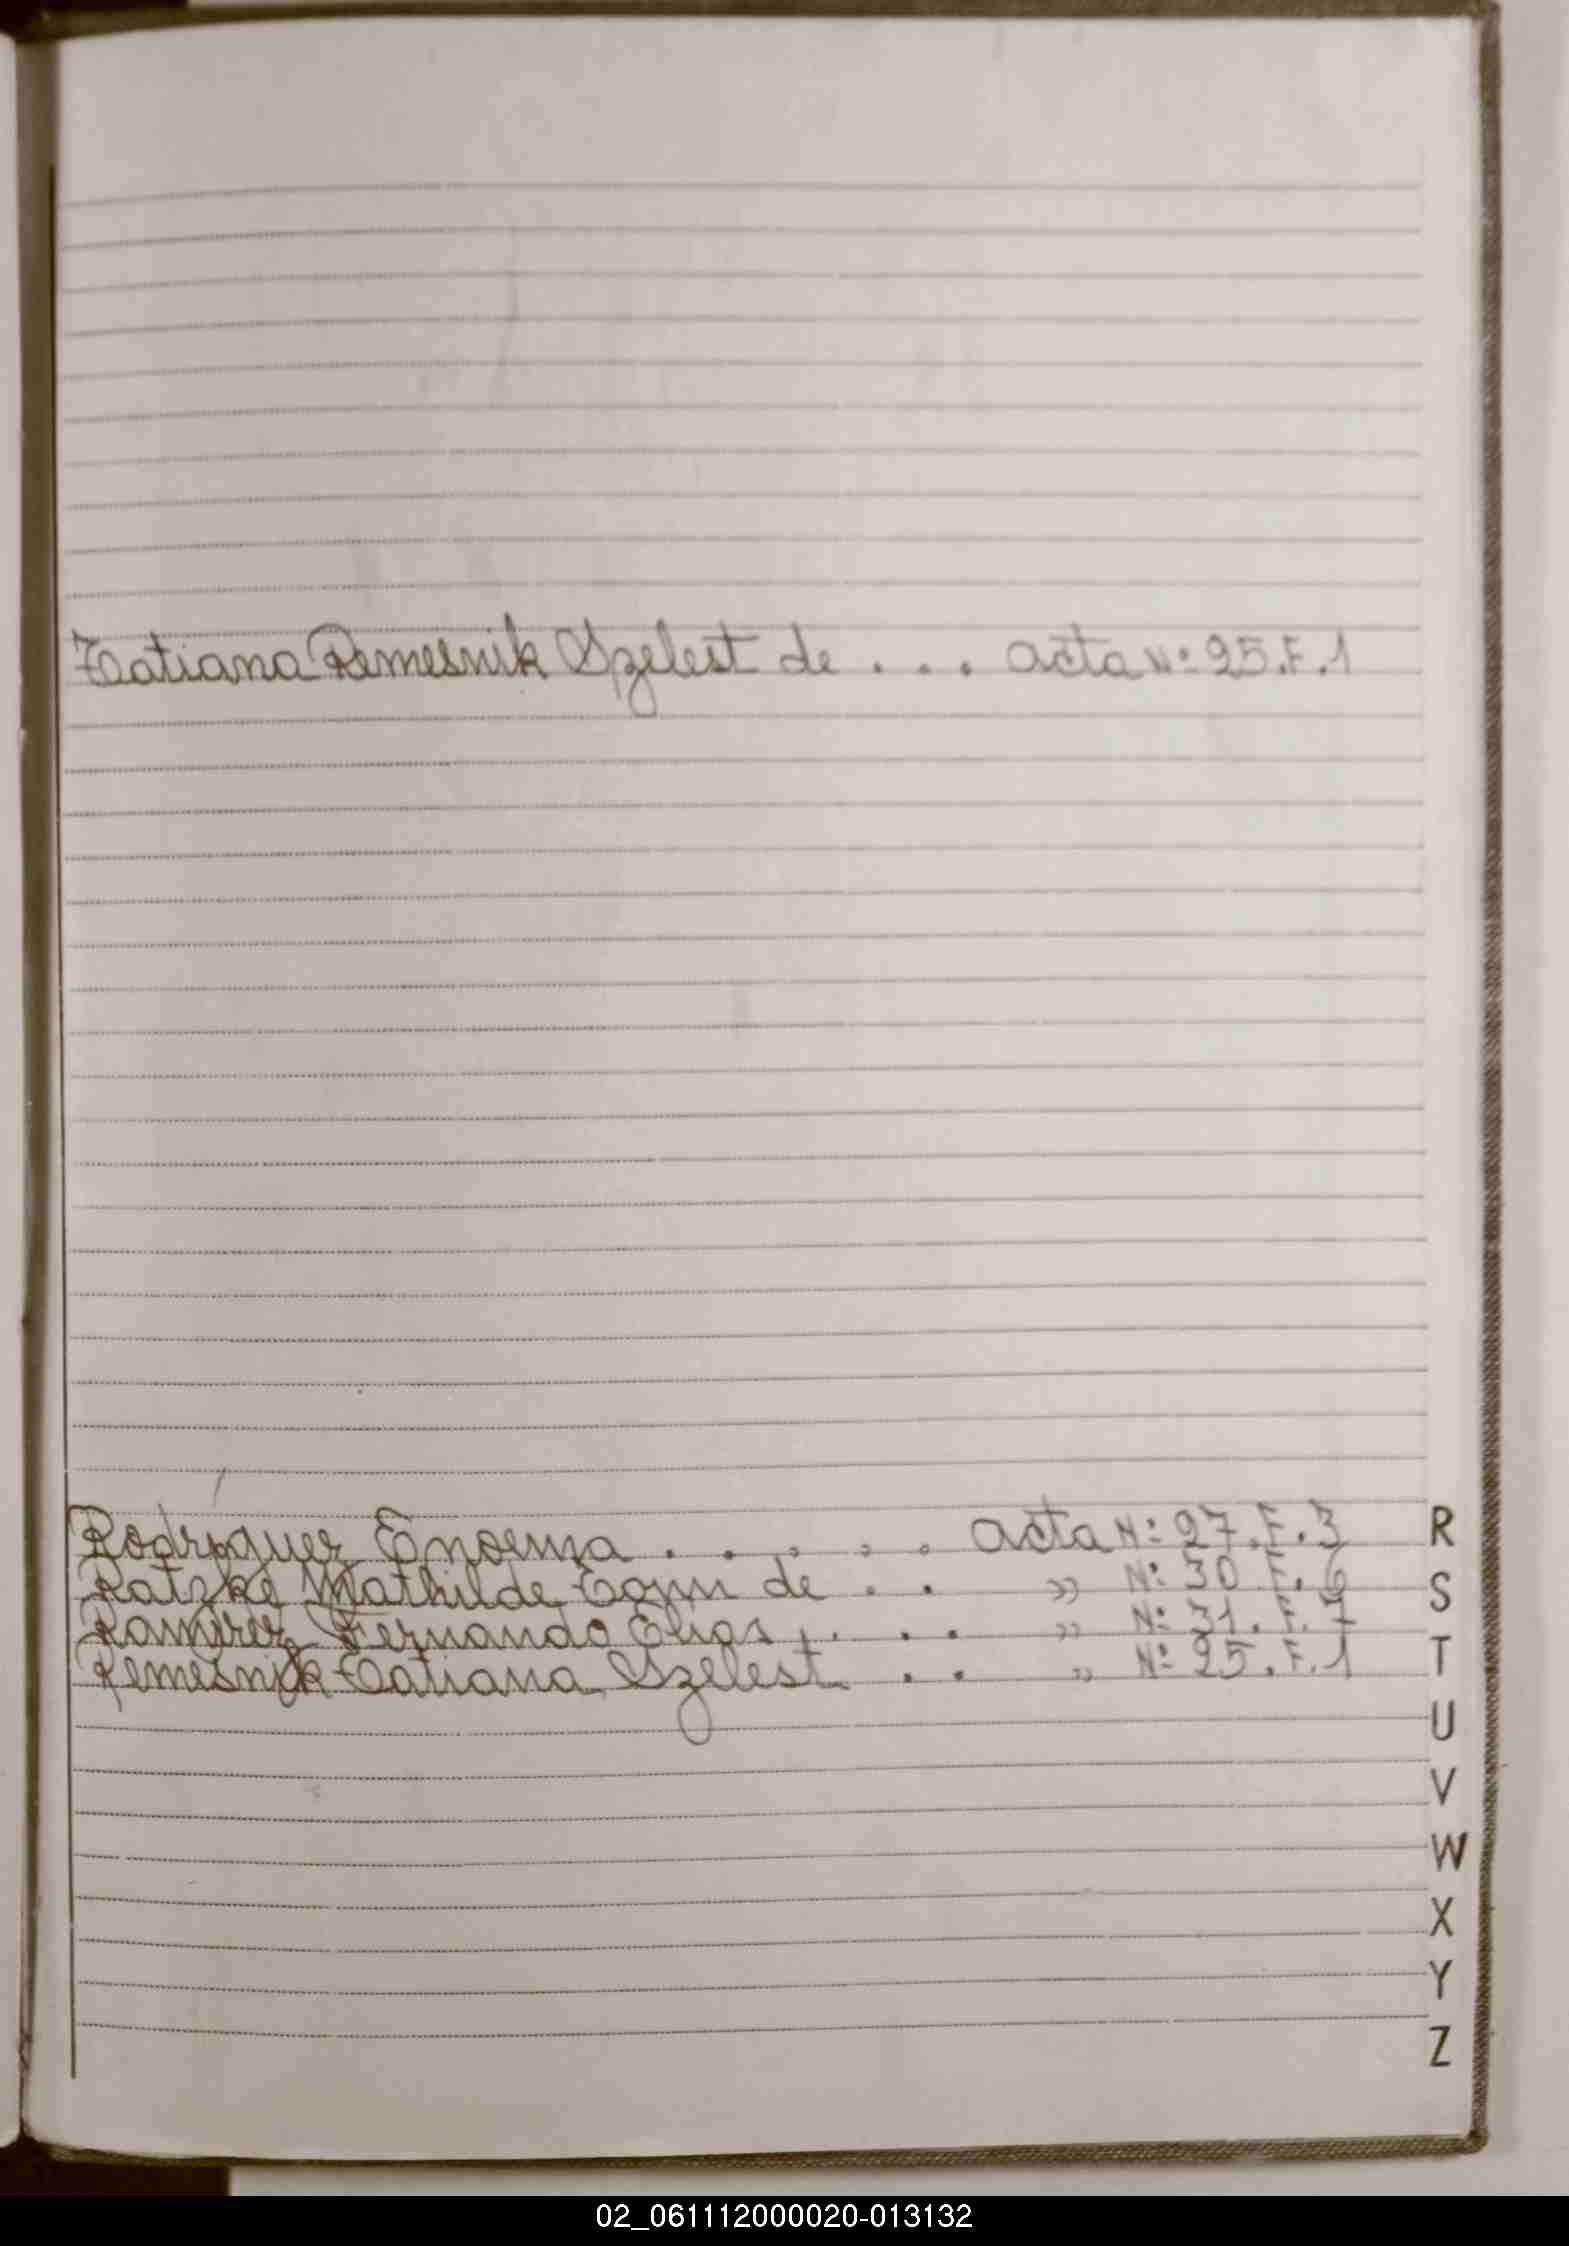 Tatiana Remesnik Szelest de . . . acta Nº 25.F.1
Rodriguez Enoema . . . . . acta Nº 27.F.3 R
Ratzke Mathilde de . . " Nº 30 F.6 S
Ramirez Fernando Elias . . . . " Nº 31.F.7
Remesnik Tatiana Szelest . . " Nº 25.F.1 T
U
V
W
X
Y
Z
02_061112000020-013132